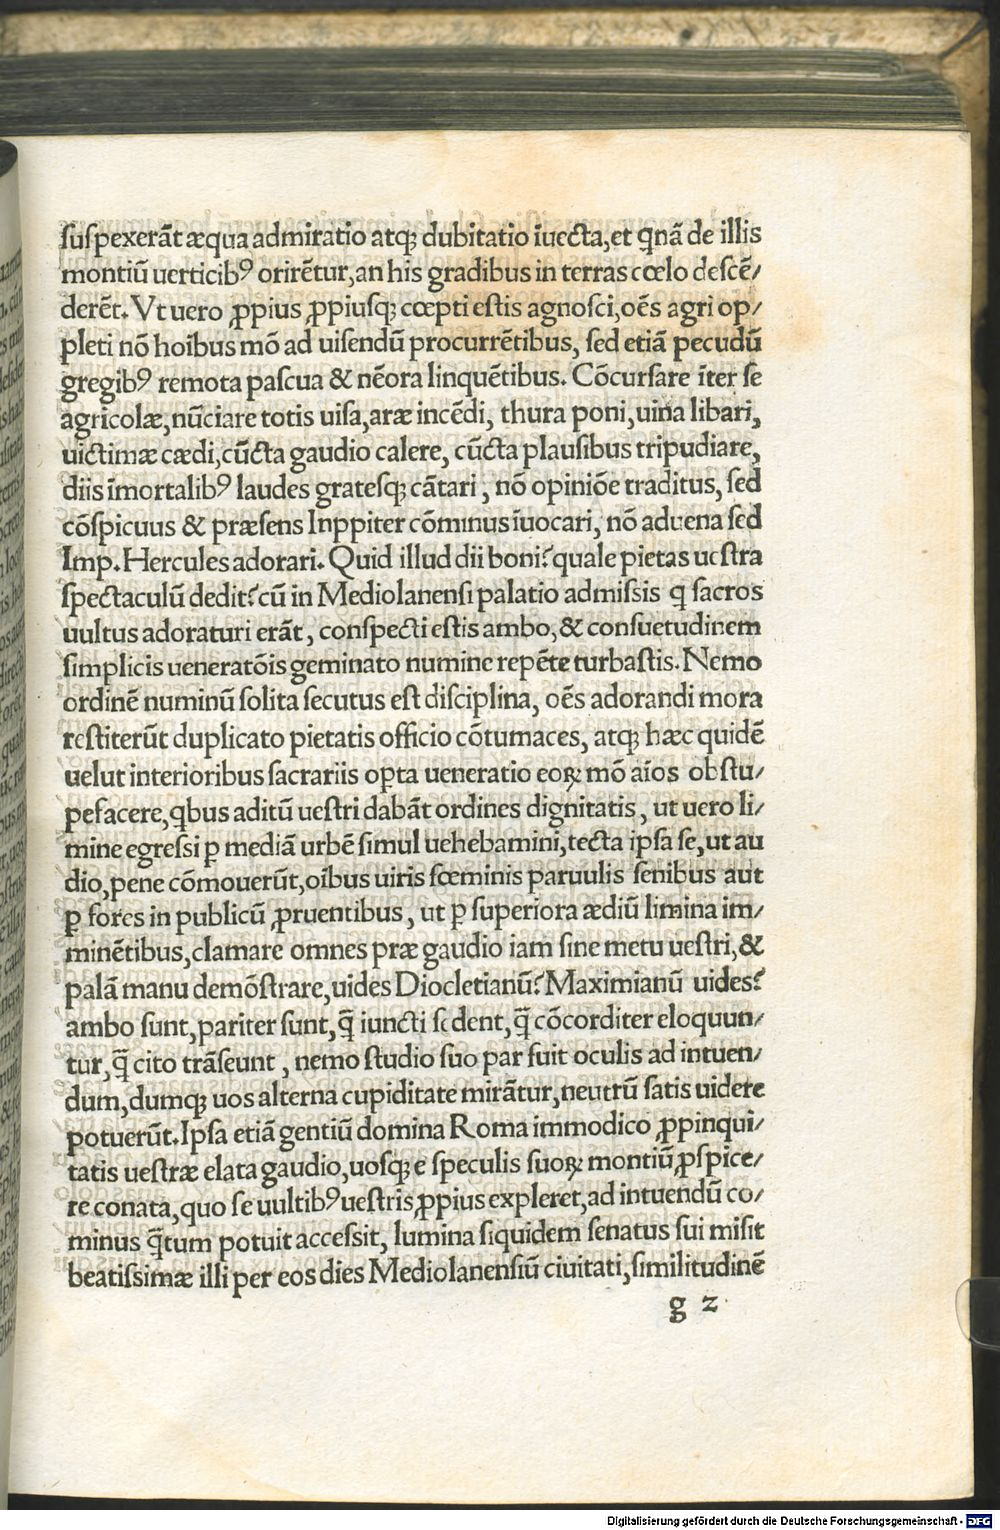 ſuſpexerãt æqua admiratio atqꝫ dubitatio īuecta,et qͥnã de illis
montiũ uerticibꝰ orirẽtur,an his gradibus in terras cœlo deſcẽ/
derẽt. Vt uero ꝓpius ꝓpiuſqꝫ cœpti eſtis agnoſci,oẽs agri op/
pleti nõ hoĩbus mõ ad uiſendũ procurrẽtibus, ſed etiã pecudũ
gregibꝰ remota paſcua & nẽora linquẽtibus. Cõcurſare ĩter ſe
agricolæ,nũciare totis uiſa,aræ incẽdi, thura poni,uina libari,
uictimæ cædi,cũcta gaudio calere, cũcta plauſibus tripudiare,
diis ĩmortalibꝰ laudes grateſqꝫ cãtari, nõ opiniõe traditus, ſed
cõſpicuus & præſens Inppiter cõminus ĩuocari, nõ aduena ſed
Imp. Hercules adorari. Quid illud dii boni? quale pietas ueſtra
ſpectaculũ dedit? cũ in Mediolanenſi palatio admiſſis q ſacros
uultus adoraturi erãt, conſpecti eſtis ambo,& conſuetudinem
ſimplicis ueneratõis geminato numine repẽte turbaſtis. Nemo
ordinẽ numinũ ſolita ſecutus eſt diſciplina, oẽs adorandi mora
reſtiterũt duplicato pietatis officio cõtumaces, atqꝫ hæc quidẽ
uelut interioribus ſacrariis opꝑta ueneratio eoꝝ mõ aĩos obſtu/
pefacere,qbus aditũ ueſtri dabãt ordines dignitatis, ut uero li/
mine egreſſi ꝑ mediã urbẽ ſimul uehebamini,tecta ipſa ſe,ut au
dio,pene cõmouerũt,oĩbus uiris fœminis paruulis ſenibus aut
ꝑ fores in publicũ ꝓruentibus, ut ꝑ ſuperiora ædiũ limina im/
minẽtibus,clamare omnes præ gaudio iam ſine metu ueſtri,&
palã manu demõſtrare,uides Diocletianũ? Maximianũ uides?
ambo ſunt,pariter ſunt,q̃ iuncti ſedent,q̃ cõcorditer eloquun/
tur,q̃ cito trãſeunt, nemo ſtudio ſuo par fuit oculis ad intuen/
dum,dumqꝫ uos alterna cupiditate mirãtur,neutrũ ſatis uidere
potuerũt. Ipſa etiã gentiũ domina Roma immodico ꝓpinqui/
tatis ueſtræ elata gaudio,uoſqꝫ e ſpeculis ſuoꝝ montiũ ꝓſpice/
re conata,quo ſe uultibꝰ ueſtris ꝓpius expleret,ad intuendũ co/
minus q̃tum potuit acceſſit, lumina ſiquidem ſenatus ſui miſit
beatiſſimæ illi per eos dies Mediolanenſiũ ciuitati,ſimilitudinẽ
g 2
Digitalisierung gefördert durch die Deutsche Forschungsgemeinschaft - DFG